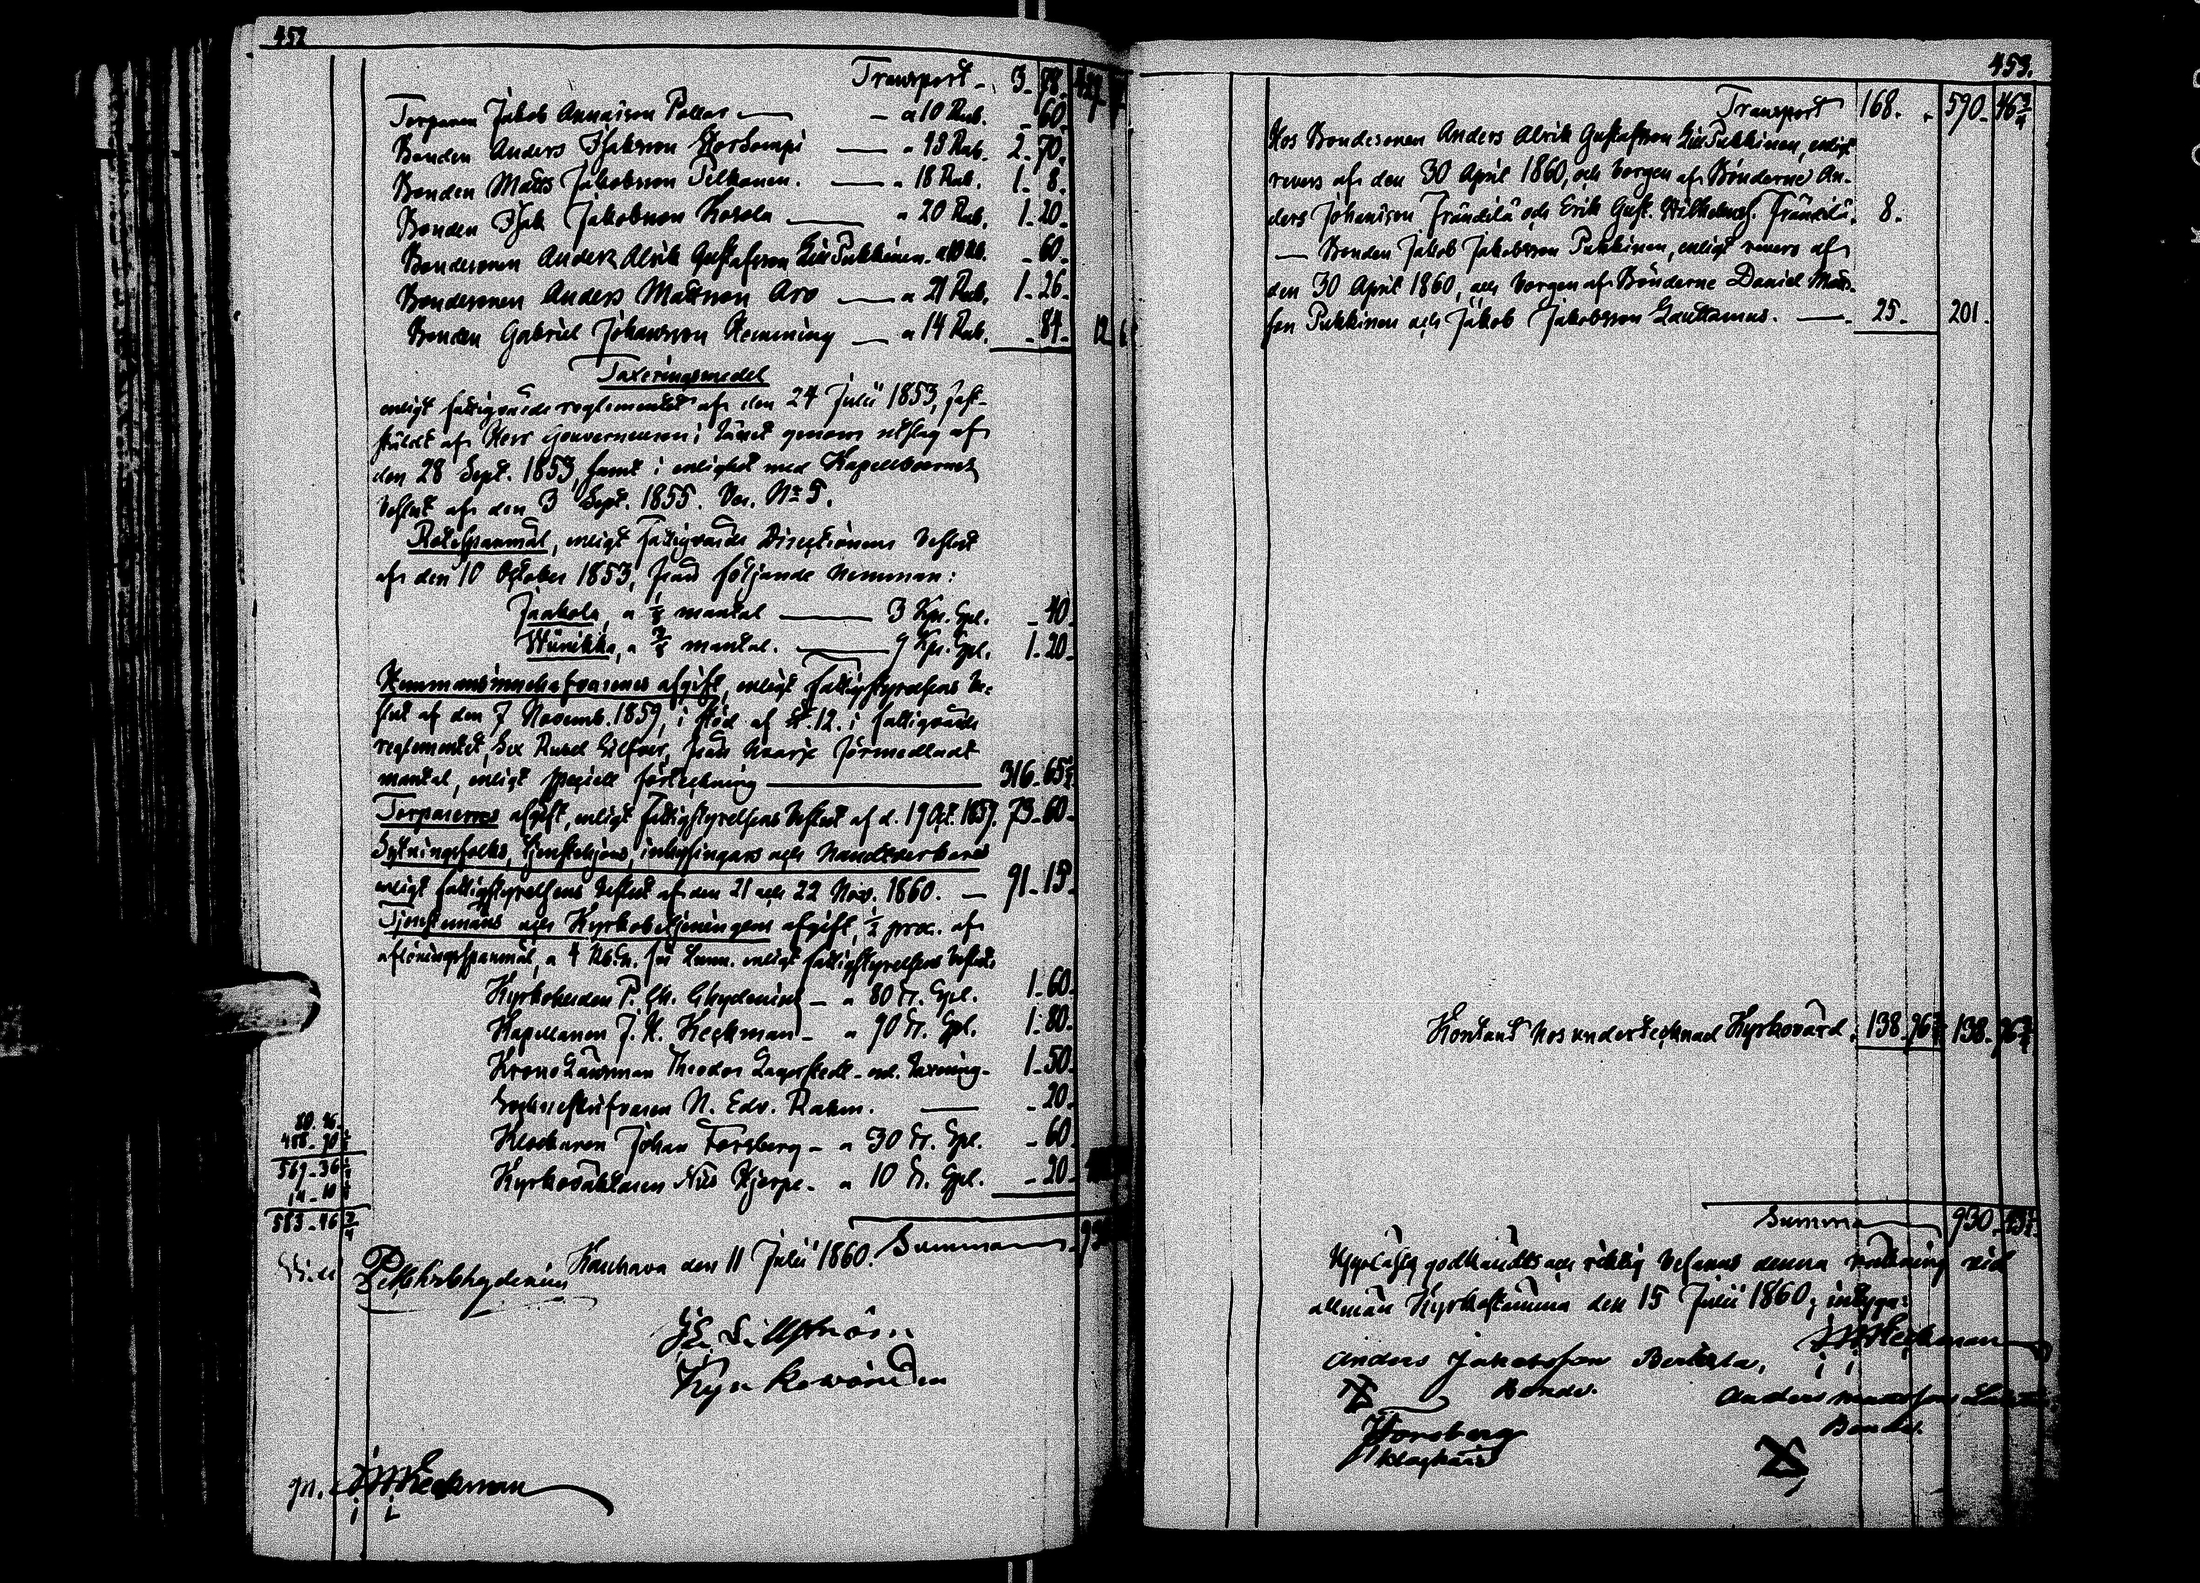 452
Transport - 3. 78.
Torparen Jakob Annaison Pollas — a 10 Rub. - 60.
Bonden Anders Isaksson Korkompi — a 23 Rub. 2. 70.
Bonden Matts Jakobsson Pelkonen. — a 18 Rub. 1. 8.
Bonden Isak Jakobsson Kosola — a 20 Rub. 1. 20.
Bondesonen Anders Alrik Gustafsson LillPukkinen a 10 Rb. - 60.
Bondesonen Anders Mattsson Aro — a 21 Rub. 1. 26.
Bonden Gabriel Johansson Hemming — a 14 Rub. - 84. 12
Taxeringsmedel
enligt fattigvårdsreglementet af den 24 Julii 1853, fast-
stäldt af Herr Gouverneuren i länet genom utslag af
den 28 Sept. 1853, samt i enlighet med Kapellboernes
beslut af den 3 Sept. 1855. Ver. No 5.
Rotespanmål, enligt Fattigvårds Directionens beslut
af den 10 October 1853, från följande hemman:
Jaakola, a mantal — 3 Kpr. Spl. - 40.
a mantal. — 9 Kpr. Spl. 1. 20.
Hemmansinnehafvarenes afgift, enligt Fattigstyrelsens be-
slut af den 7 Novemb. 1859, i stöd af § 12. i fattigvårds
reglementet, Sex Rubel Silfver, från hvarje förmedladt
mantal, enligt speciell förteckning — 316. 65
Torparenes afgift, enligt Fattigstyrelsens beslut af d. 19 Oct. 1857. 73. 60.
Sytningsfolks, tjenstehjons, inhysingars och handtverkares
enligt fattigstyrelsens beslut af den 21 och 22 Nov. 1860. — 91. 15.
Tjenstemäns och Kyrkobetjeningens afgift, ½ proc. af
aflöningsspanmål, a 4 Rb. S. för tunn. enligt fattigstyrelsens beslut.
Kyrkoherden P. Ch. Chydenius — a 80 Tr. Spl. 1. 60.
Kapellanen J. H. Heckman — a 90 Tr. Spl. 1. 80.
Krono Länsman Theodor Lagerstedt - enl. taxering - 1. 50.
Sockneskrifvaren N. Edv. Rahm. — - 20.
Klockaren Johan Forsberg - a 30 Tr. Spl. - 60.
Kyrkovaktaren Nils Hjerpe - a 10 Tr. Spl. - 20.
80. 46.
488. 90
569. 36
14. 10
583. 46
Summa
Kauhava den 11 Julii 1860.
Pet. Chr. Chydenius
Lillström
Kyrkowärden
gn. J H Heckman
453.
Transport 168. 590. 46¾
Hos Bondesonen Anders Alrik Gustafsson LillPukkinen, enligt
revers af den 30 April 1860, och borgen af Bönderne An-
ders Johansson Frändilä och Erik Gust. Wilhelmss. Frändilä. 8.
— Bonden Jakob Jakobsson Pukkinen, enligt revers af
den 30 April 1860, och borgen af Bönderne Daniel Matts-
son Pukkinen och Jakob Jakobsson Lauttamus. — 25. 201.
Kontant hos undertecknad Kyrkovärd. 138. 96¾ 138. 96¾
Summa 930. 43½
Uppläst, godkändt och riktig befanns denna räkning vid
allmän Kyrkostämma den 15 Julii 1860; intyga:
J H Heckman
Anders Jakobsson
Bonde.
Anders Mattsson
Bonde.
J Forsberg
klockare